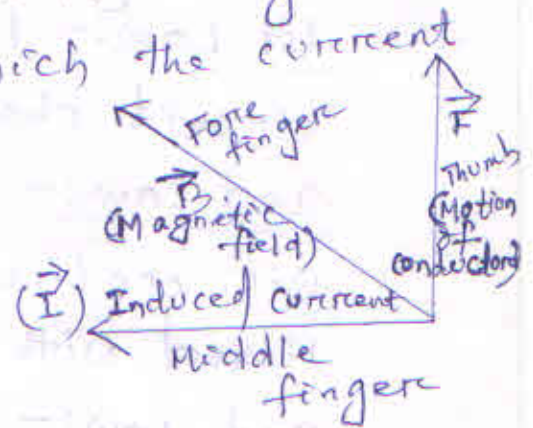 which the current
Fore
finger
B
(Magnetic
field)
F
Thumb
(Motion
of
conductor)
(I) Induced current
Middle
finger